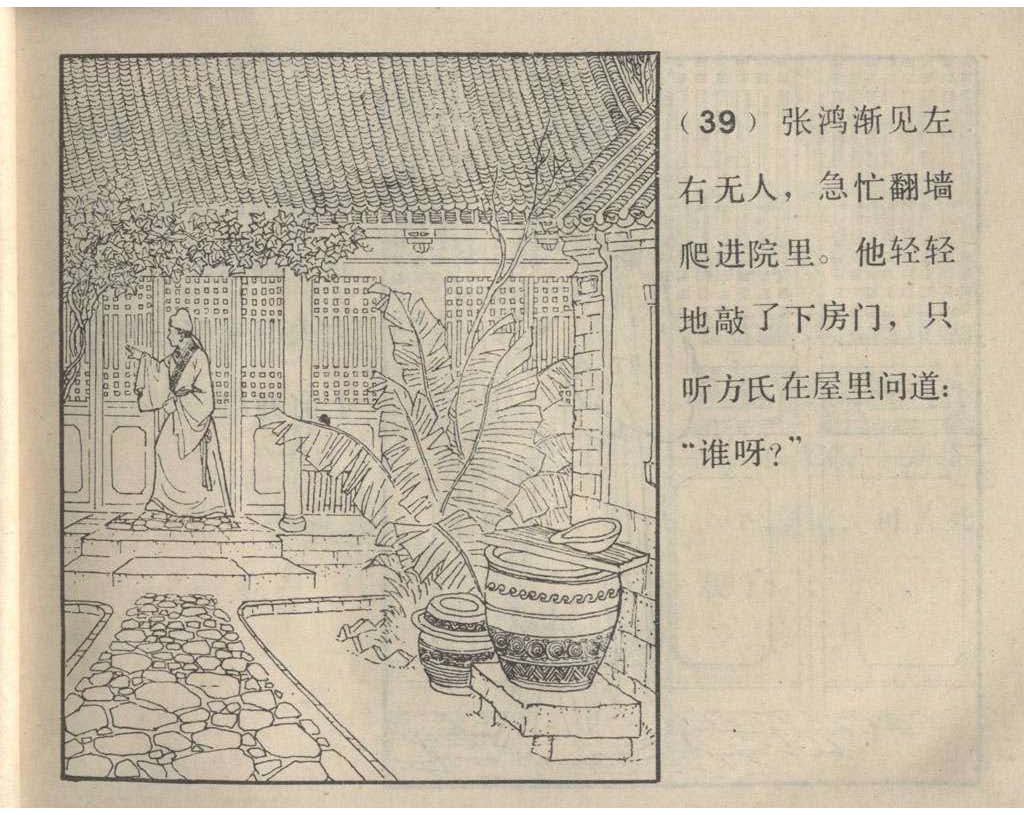 （39）张鸿渐见左
右无人，急忙翻墙
爬进院里。他轻轻
地敲了下房门，只
听方氏在屋里问道：
“谁呀？”